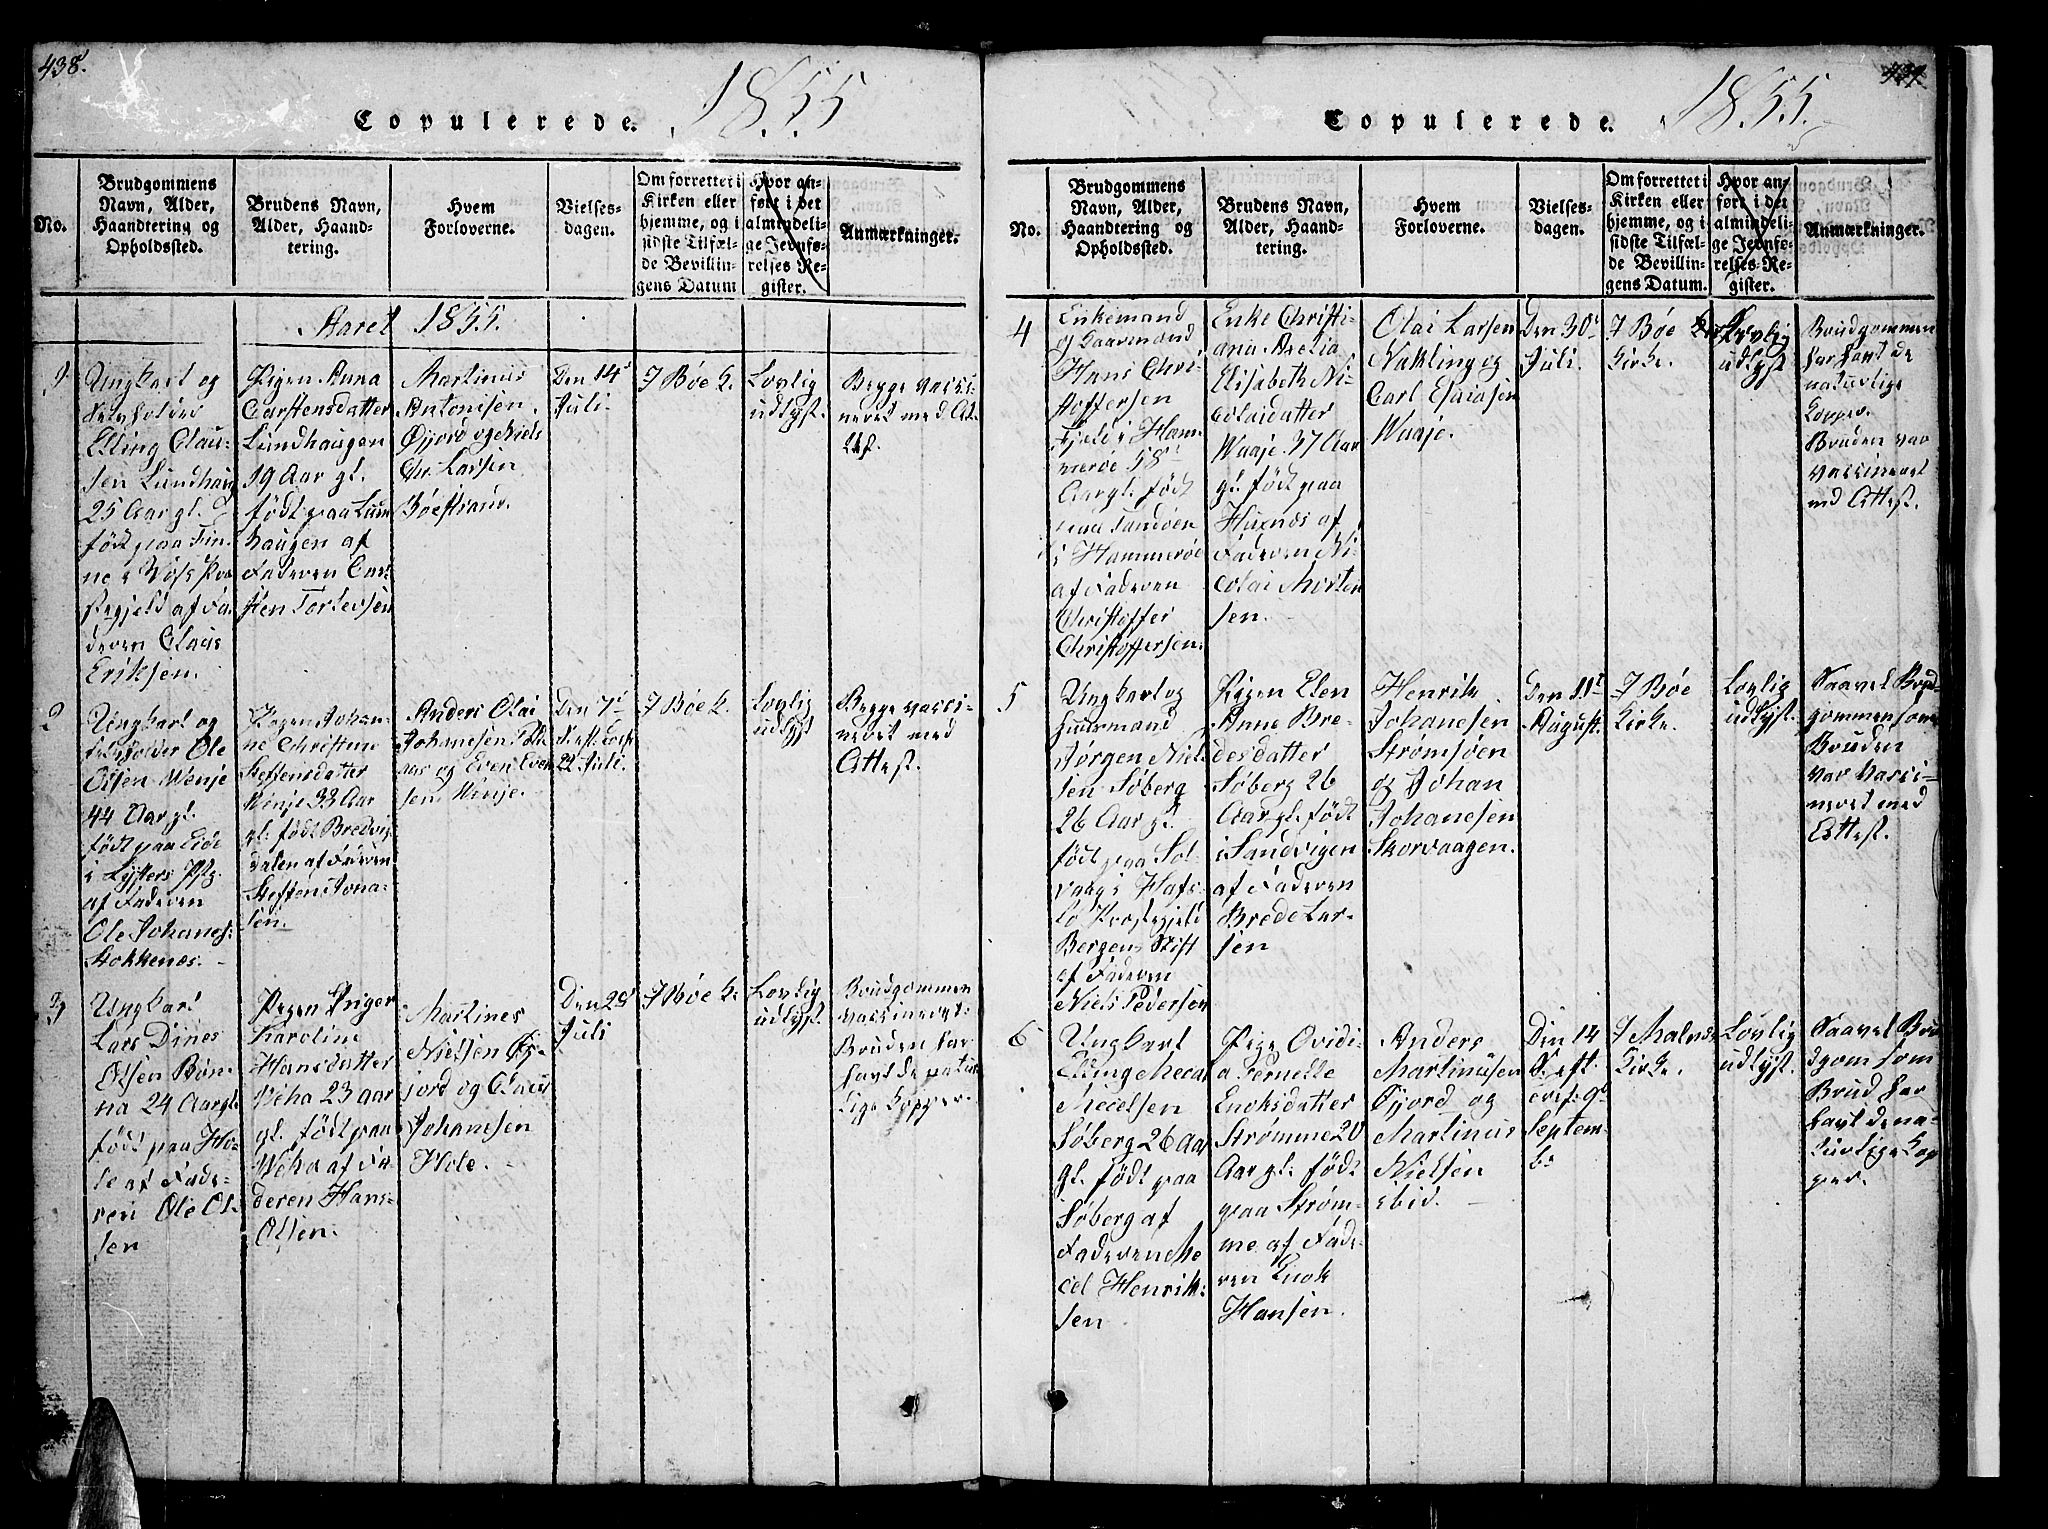 438.
1855
Copulerede.
No.
Brudgommens
Navn, Alder,
Haandtering og
Opholdssted.
Brudens Navn,
Alder, Haand-
tering.
Hvem
Forloverne.
Vielses-
dagen.
Om forrettet i
Kirken eller
hjemme, og i
sidste Tilfæl-
de Bevillin-
gens Datum
Hvor an-
ført i det
almindeli-
ge Jevnfø-
relses-Re-
gister.
Anmærkninger.
Aaret 1855.
1
Ungkarl og
Elling Clau-
sen Lundhaug
25 Aar gl.
født paa Fin-
ne i Wos Præ
stegjeld af Fa-
deren Claus
Eriksen.
Pigen Anna
Carstensdatter
Lundhaugen
19 Aar gl.
født paa Lun
haugen af
Faderen Car
sten Torlevsen
Martinus
Antonisen
Øijord og Niels
Chr. Larsen
Bøestrand.
Den 14de
Juli.
I Bøe K.
Lovlig
udlyst.
Begge vacci-
neret med At-
test.
2
Ungkarl og
Ole
Olsen Wenje
44 Aar gl.
født paa
i Lysters Pstg.
af Faderen
Ole Johanes:
Stokkenes.
Pigen Johan-
ne Christine
Steffensdatter
33 Aar
gl. født Bredvig
dalen af Faderen
Steffen Jona-
sen.
Anders Olai
Johanesen
aas og Even Even
sen Winje.
Den 7de
22 Juli.
I Bøe K.
Lovlig
udlyst
Begge vacci-
neret med
Attest.
3
Ungkarl
Lars Dines
Olsen Bøn-
na 24 Aar gl.
født paa Ho-
le af Fade-
ren Ole Ol-
sen
Pigen Inger
Karoline
Hansdatter
Veha 23 aar
gl. født paa
Weha af Fa-
deren Hans
Olsen.
Martines
Nielsen Øi-
jord og Claus
Johanesen
Hole.
Den 28de
Juli
I Bøe K.
Lovlig
udlyst.
Brudgommen
vaccineret:
Bruden har
havt de natur
lige Kopper.
439
1855.
Copulerede.
No.
Brudgommens
Navn, Alder,
Haandtering og
Opholdssted.
Brudens Navn,
Alder, Haand-
tering.
Hvem
Forloverne.
Vielses-
dagen.
Om forrettet i
Kirken eller
hjemme, og i
sidste Tilfæl-
de Bevillin-
gens Datum.
Hvor an-
ført i det
almindeli-
ge Jevnfø-
relses-Re-
gister.
Anmærkninger.
4
Enkemand
og Gaarmand
Hans Chri-
stoffersen
Fjeld i Ham-
merøe 58
Aar gl. født
paa Tandøen
i Hammerøe
af Faderen
Christoffer
Christoffersen.
Enke Christi-
ana Arelia
Elisabeth Ni-
colaidatter
Waaje. 37 Aar
gl. født paa
Huxnes af
Faderen Ni-
colai Morten
sen.
Olai Larsen
Nykling og
Carl Esaiasen
Waaje.
Den 30de
Juli.
I Bøe
Kirke.
Lovlig
udlyst
Brudgommen
har havt de
naturlige
Kopper.
Bruden var
vaccineret
med Attest.
5
Ungkarl og
Huusmand
Jørgen Niel
sen Søberg
26 Aar gl.
født paa Sol-
vaag i Hafs-
lo Præstegjeld
Bergens Stift
af Faderen
Niels Pedersen
Pigen Elen
Anne Bre-
desdatter
Søberg 26
Aar gl. født
i Sandvigen
af Faderen
Brede Lar-
sen
Henrik
Johanesen
Strømsøen
og Johan
Johanesen
Skorvaagen.
Den 11te
August.
I Bøe
Kirke.
Lovlig
udlyst.
Saavel Brud-
gommen som
Bruden
var vacci-
neret med
Attest.
6
Ungkarl
Elling Mecal
Mecelsen
Søberg 26 Aar
gl. født paa
Søberg af
Faderen Me
cel Henrik-
sen
Pige Ovidi-
a Pernelle
Enoksdatter
Strømme 20
Aar gl. født
paa Strøm-
me af Fade-
ren Enok
Hansen.
Anders
Martinusen
Øijord og
Martinus
Nielsen
ibid.
Den 14
Septem-
br
I Malnes
Kirke.
Lovlig
udlyst.
Saavel Bru
dgom som
Brud har
havt de na-
turlige Kop
per.